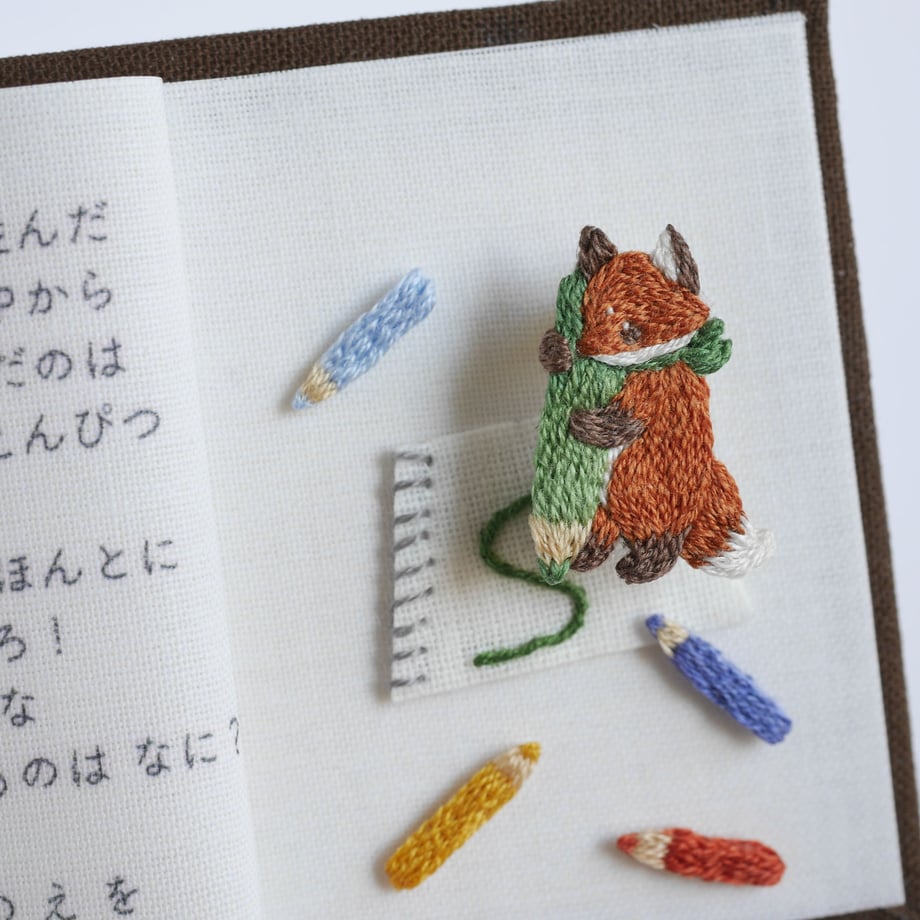 んだ
から
だのは
んぴつ
ほんとに
ろ！
な
のは なに?
えを